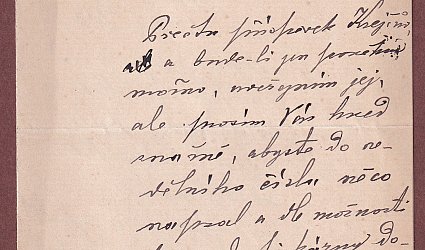 Přečtu příspěvek Krejčův,
a bude-li jen poněkud
možno, uveřejním jej,
ale prosím Vás hned
snažně, abyste do ne-
dělního čísla něco
napsal a dle možnosti
do-